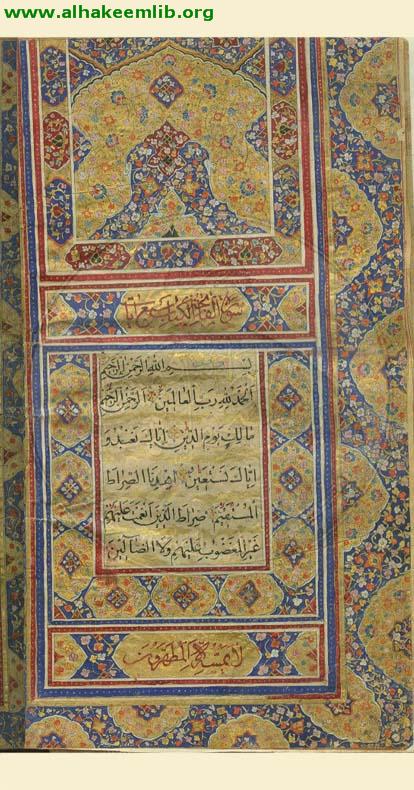 www.alhakeemlib.org
سورة الفاتحة الكتاب سبع آيات
بسم الله الرحمن الرحيم
الحمد لله رب العالمين الرحمن الرحيم
مالك يوم الدين اياك نعبد و
اياك نستعين اهدنا الصراط
المستقيم صراط الذين انعمت عليهم
غير المغضوب عليهم ولا الضالين
لا يمسه الا المطهرون